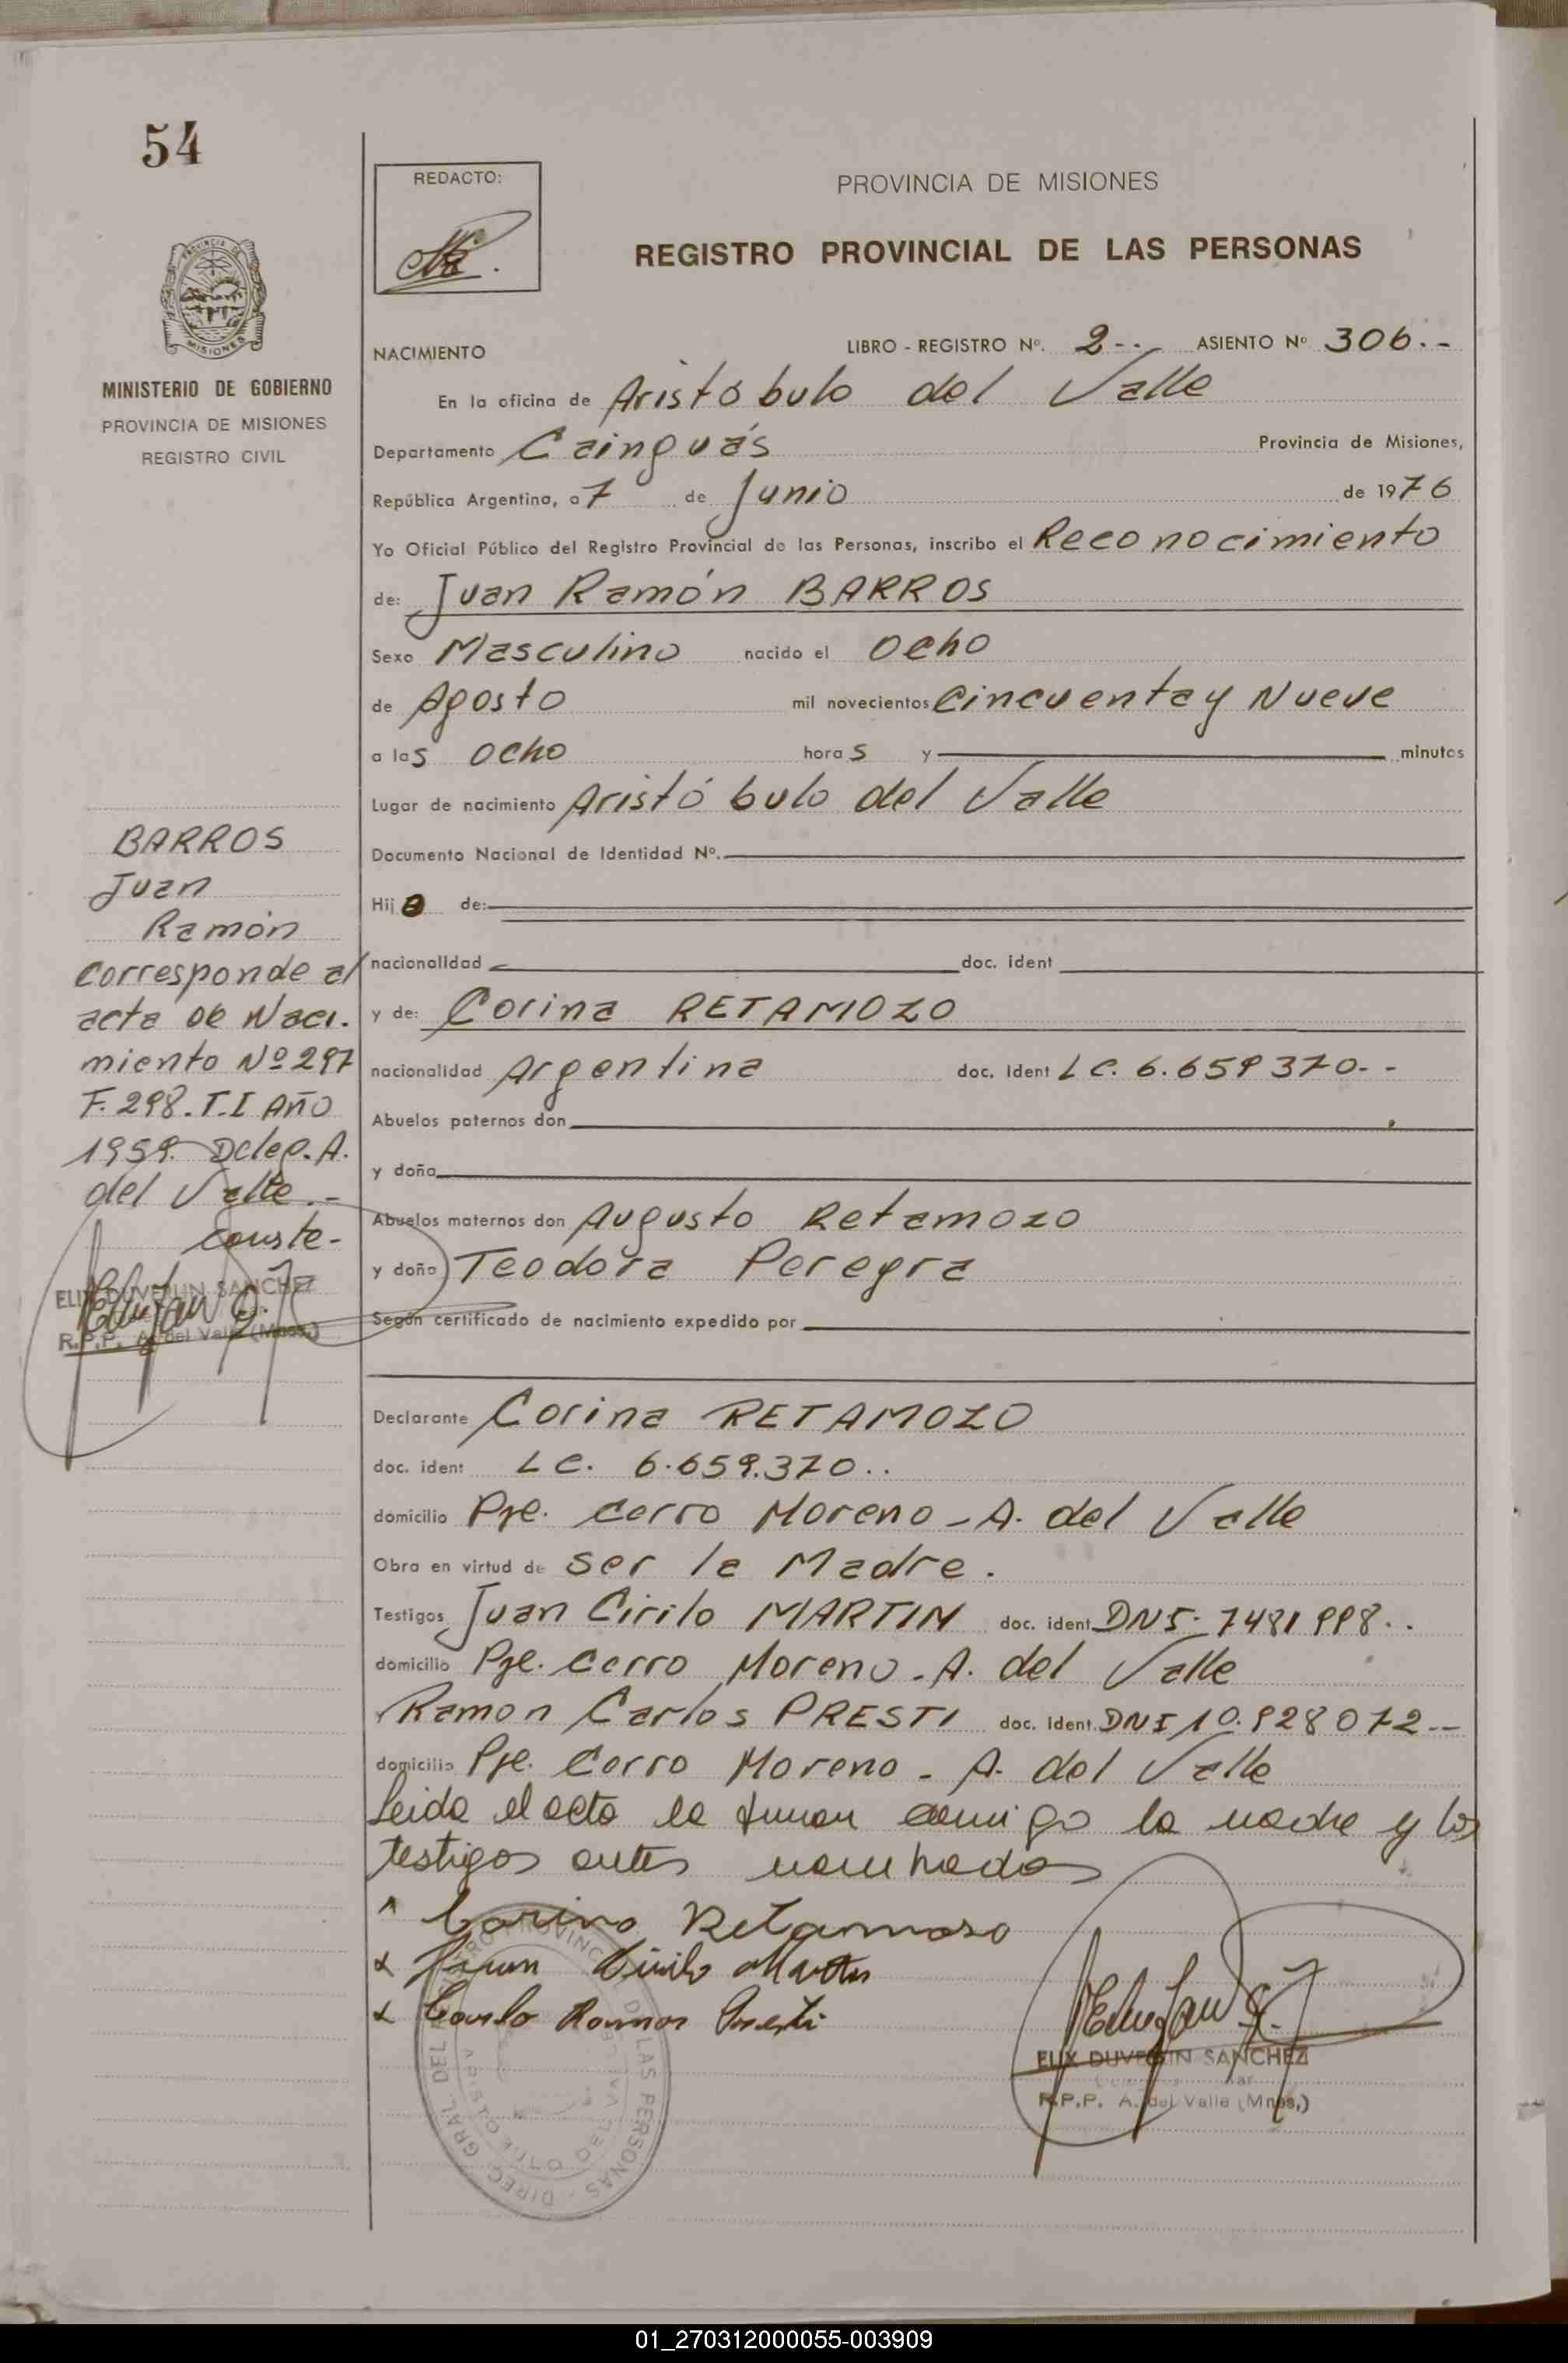 54
REDACTO:
PROVINCIA DE MISIONES
REGISTRO PROVINCIAL DE LAS PERSONAS
MISIONES
MINISTERIO DE GOBIERNO
PROVINCIA DE MISIONES
REGISTRO CIVIL
NACIMIENTO LIBRO - REGISTRO Nº. 2-. ASIENTO Nº 306.-
En la oficina de Aristóbulo del Valle
Departamento Cainguás Provincia de Misiones,
República Argentina, a 7 de Junio de 1976
Yo Oficial Público del Registro Provincial de las Personas, inscribo el Reconocimiento
de: Juan Ramón BARROS
Sexo Masculino nacido el ocho
de Agosto mil novecientos cincuenta y Nueve
a las ocho horas y minutos
Lugar de nacimiento Aristóbulo del Valle
Documento Nacional de Identidad Nº.
Hijo de:
nacionalidad doc. ident
y de: Corina RETAMOZO
nacionalidad Argentina doc. ident LC. 6.659370--
Abuelos paternos don
y doña
Abuelos maternos don Augusto Retamozo
y doña Teodora Peregra
Según certificado de nacimiento expedido por
Declarante Corina RETAMOZO
doc. ident LC. 6.659.370..
domicilio Pje. Cerro Moreno - A. del Valle
Obra en virtud de ser la Madre.
Testigos Juan Cirilo MARTIN doc. ident DNI. 7481998..
domicilio Pje. Cerro Moreno - A. del Valle
Ramon Carlos PRESTI doc. ident. DNI 10.928072--
domicilio Pje. Cerro Moreno - A. del Valle
Leida el acta la firman conmigo la madre y los
testigos antes nombrados
Corina Retamozo
x Juan Cirilo Martin
x Carlo Ramon Presti
ELIX DUVERLIN SANCHEZ
R.P.P. A. del Valle (Mnes.)
BARROS
Juan
Ramón
Corresponde al
acta de Naci.
miento Nº 297
F. 298. T.I Año
1959. Deleg. A.
del Valle.-
Conste-
ELIX DUVERLIN SANCHEZ
R.P.P. A. del Valle (Mnes.)
01_270312000055-003909